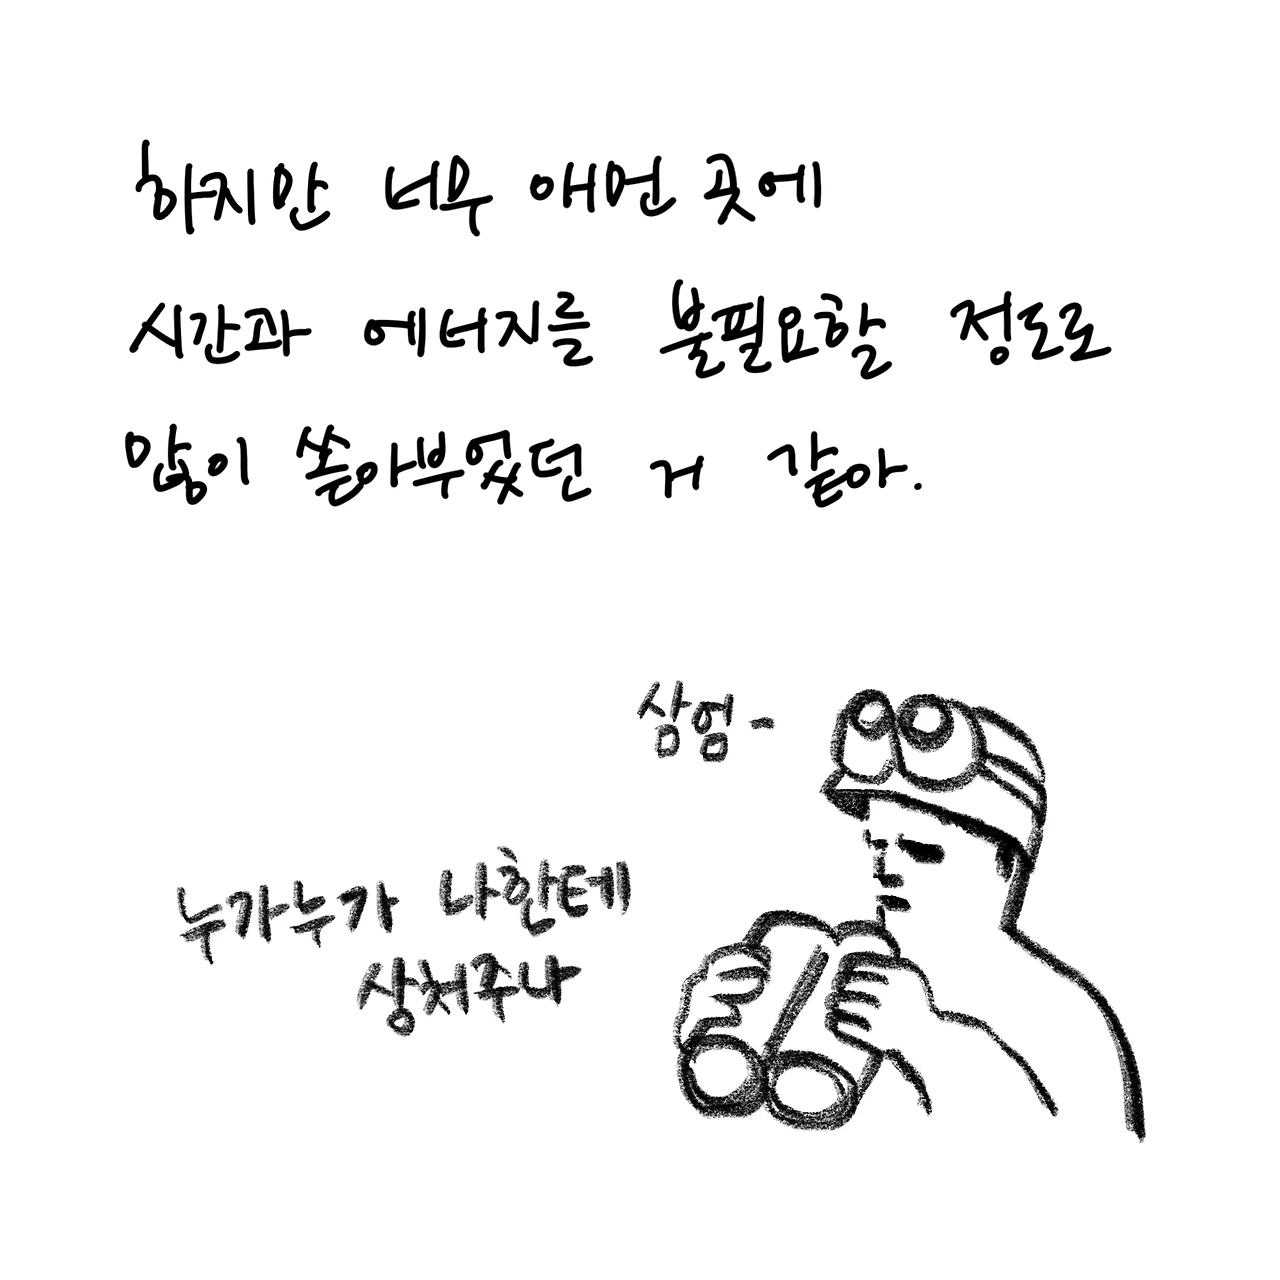 하지만 너무 애먼 곳에
시간과 에너지를 불필요할 정도로
많이 쏟아부었던 거 같아.
삼엄-
누가누가 나한테
상처주나